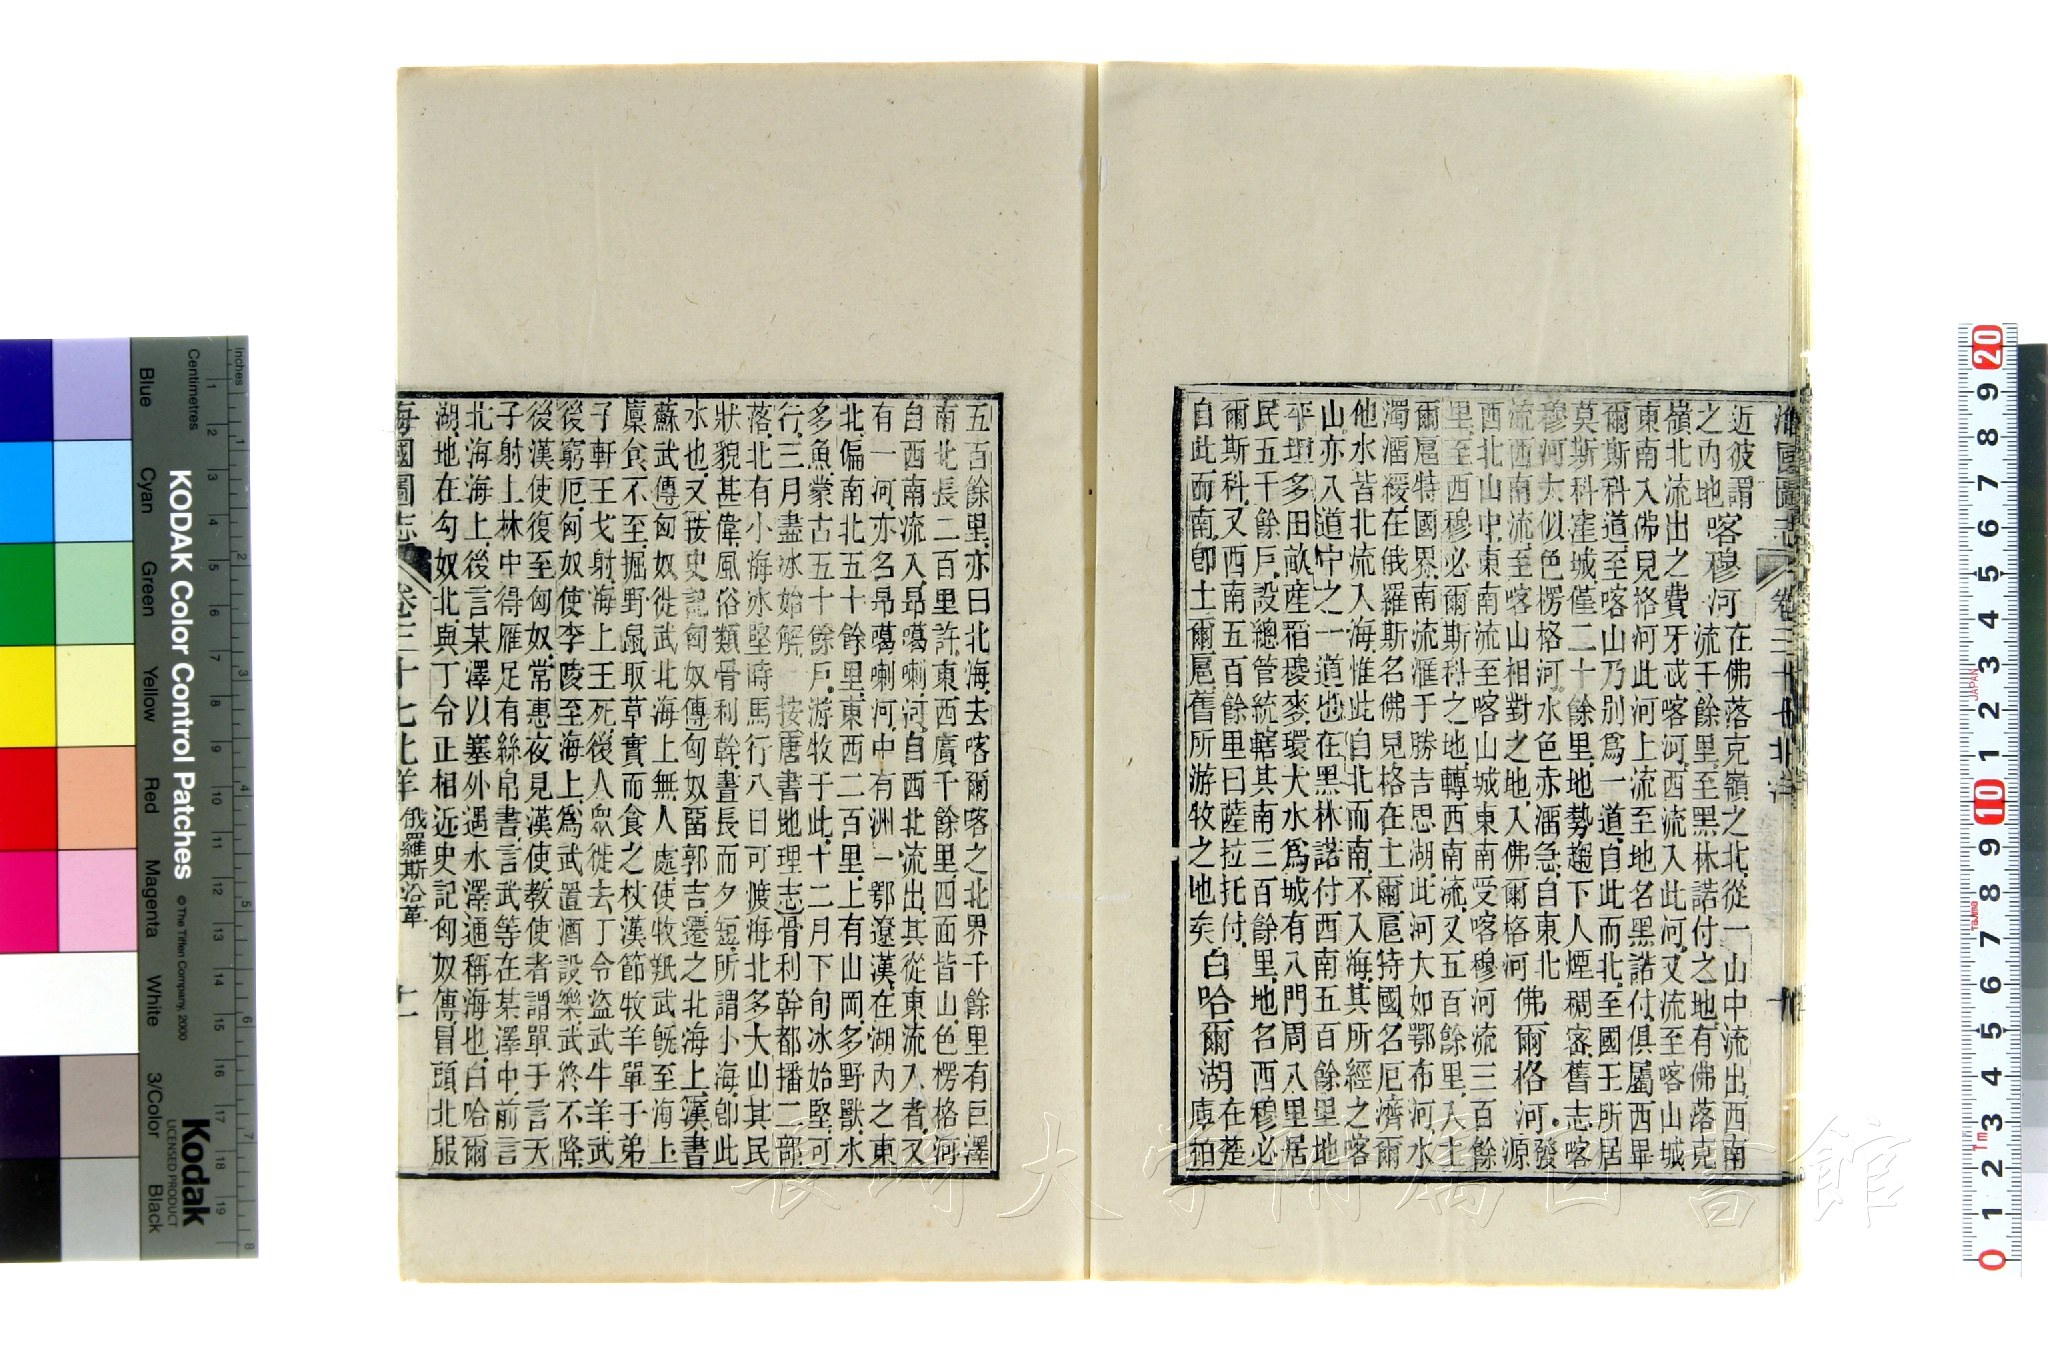 海國圖志 卷三十七 北洋
近彼謂 喀穆河 在佛落克嶺之北從一山中流出西南
之內地 流千餘里至黑林諾付之地有佛落克
嶺北流出之費牙忒喀河西流入此河又流至喀山城
東南入佛見格河此河上流至地名黑諾付俱屬西畢
爾斯科道至喀山乃別為一道自此而北至國王所居
莫斯科窪城僅二十餘里地勢趨下人煙稠密舊志喀
穆河大似色楞格河水色赤溜急自東北 佛爾格河發源
流西南流至喀山相對之地入佛爾格河
西北山中東南流至喀山城東南受喀穆河流三百餘
里至西穆必爾斯科之地轉西南流又五百餘里入土
爾扈特國界南流滙于勝吉思湖此河大如鄂布河水
濁溜緩在俄羅斯名佛見格在土爾扈特國名厄濟爾
他水皆北流入海惟此自北而南不入海其所經之喀
山亦八道中之一道也在黑林諾付西南五百餘里地
平坦多田畝産稻稷麥環大水為城有八門周八里居
民五千餘戶設總管統轄其南三百餘里地名西穆必
爾斯科又西南五百餘里曰薩拉托付 白哈爾湖 在楚
自此而南卽土爾扈舊所游牧之地矣 庫柏
五百餘里亦曰北海去喀爾喀之北界千餘里有巨澤
南北長二百里許東西廣千餘里四面皆山色楞格河
自西南流入昂噶喇河自西北流出其從東流入者又
有一河亦名昂噶喇河中有洲一鄂遼漢在湖內之東
北偏南北五十餘里東西二百里上有山岡多野獸水
多魚蒙古五十餘戶游牧于此十二月下旬冰始堅可
行三月盡冰始解 按唐書地理志骨利幹都播二部
落北有小海冰堅時馬行八日可渡海北多大山其民
狀貌甚偉風俗類骨利幹晝長而夕短所謂小海卽此
水也又按史記匈奴傳匈奴畱郭吉遷之北海上漢書
蘇武傳匈奴徙武北海上無人處使牧羝武旣至海上
廩食不至掘野鼠取草實而食之杖漢節牧羊單于弟
于軒王弋射海上王死後人眾徙去丁令盜武牛羊武
後窮厄匈奴使李陵至海上為武置酒設樂武終不降
後漢使復至匈奴常惠夜見漢使教使者謂單于言天
子射上林中得雁足有絲帛書言武等在某澤中前言
北海海上後言某澤以塞外遇水澤通稱海也白哈爾
湖地在匈奴北與丁令正相近史記匈奴傳冒頭北服
海國圖志 卷三十七 北洋 俄羅斯沿革 十一
長崎大学附属図書館
KODAK Color Control Patches
© The Tiffen Company, 2000
Kodak
LICENSED PRODUCT
Inches
Centimetres
Blue Cyan Green Yellow Red Magenta White 3/Color Black
1 2 3 4 5 6 7 8 9 10 11 12 13 14 15 16 17 18 19
1 2 3 4 5 6 7 8
20 9 8 7 6 5 4 3 2 1 10 9 8 7 6 5 4 3 2 1 0
JAPAN
Tajima